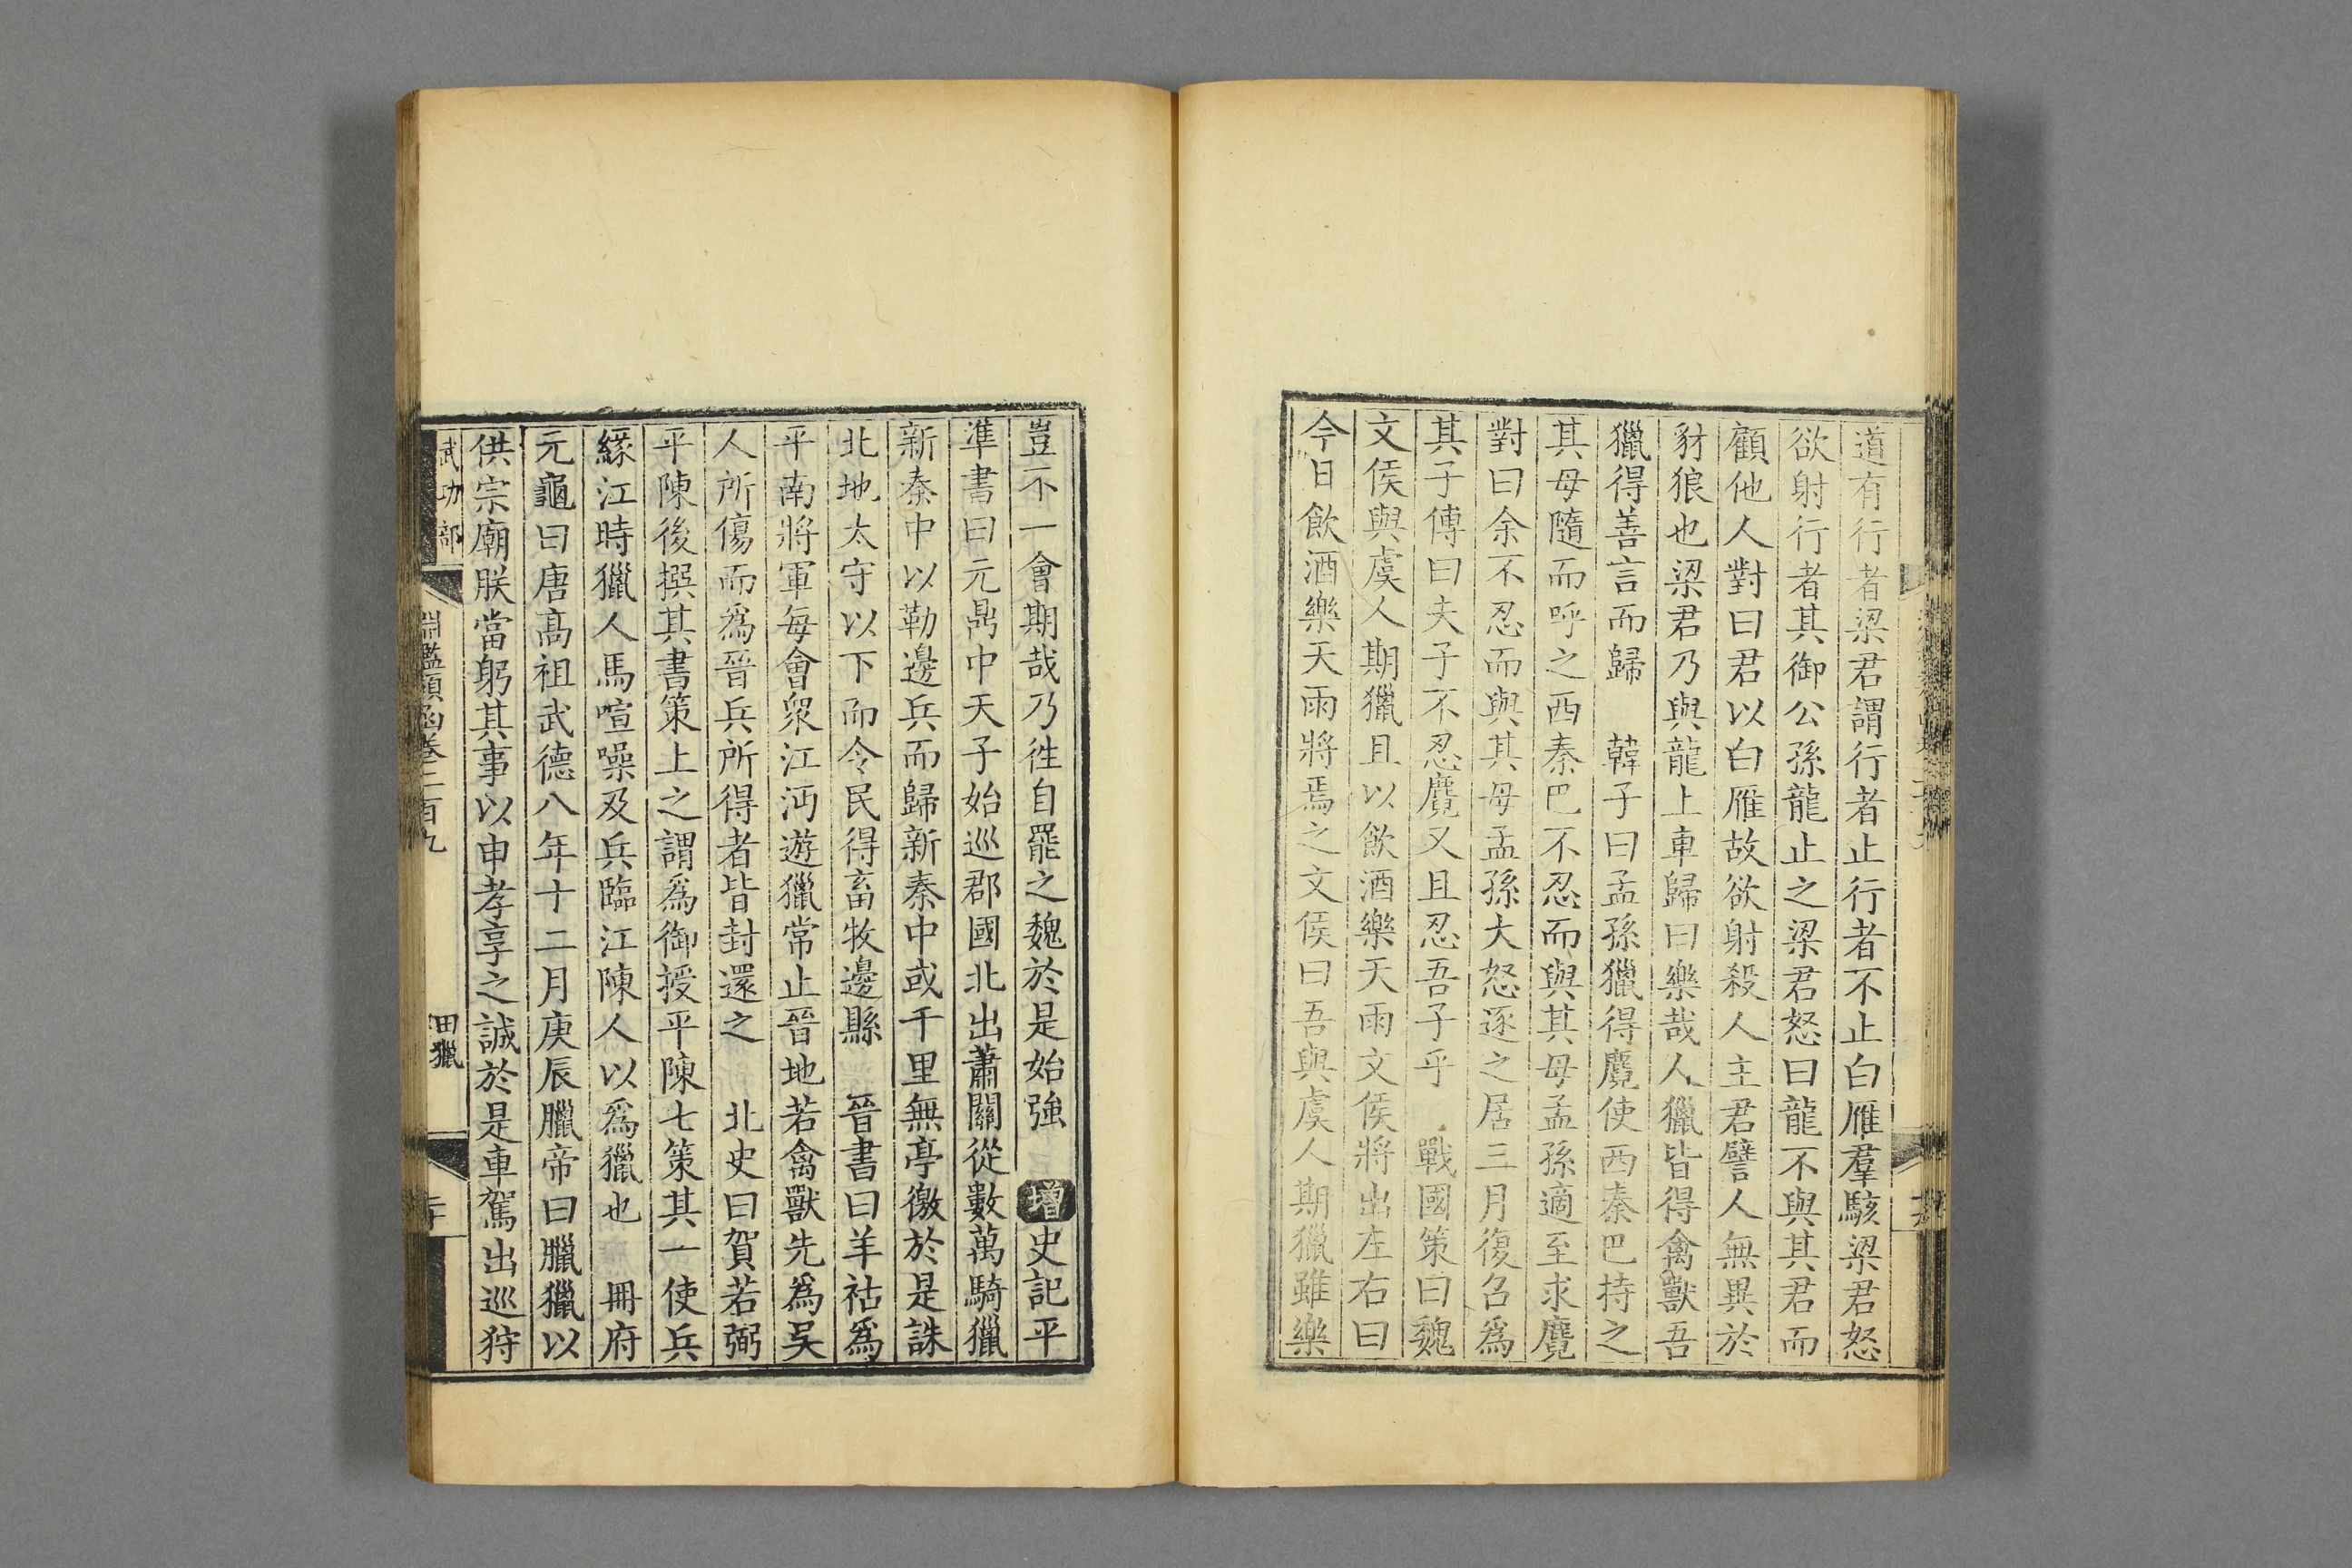 道有行者梁君謂行者止行者不止白雁羣駭梁君怒
欲射行者其御公孫龍止之梁君怒曰龍不與其君而
顧他人對曰君以白雁故欲射殺人主君譬人無異於
豺狼也梁君乃與龍上車歸曰樂哉人獵皆得禽獸吾
獵得善言而歸 韓子曰孟孫獵得麑使西秦巴持之
其母隨而呼之西秦巴不忍而與其母孟孫適至求麑
對曰余不忍而與其母孟孫大怒逐之居三月復召爲
其子傅曰夫子不忍麑又且忍吾子乎 戰國策曰魏
文侯與虞人期獵且以飲酒樂天雨文侯將出左右曰
今日飲酒樂天雨將焉之文侯曰吾與虞人期獵雖樂
豈不一會期哉乃往自罷之魏於是始強 增史記平
準書曰元鼎中天子始巡郡國北出蕭關從數萬騎獵
新秦中以勒邊兵而歸新秦中或千里無亭徼於是誅
北地太守以下而令民得畜牧邊縣 晉書曰羊祜爲
平南將軍每會衆江沔遊獵常止晉地若禽獸先爲吳
人所傷而爲晉兵所得者皆封還之 北史曰賀若弼
平陳後撰其書策上之謂爲御授平陳七策其一使兵
緣江時獵人馬喧噪及兵臨江陳人以爲獵也 冊府
元龜曰唐高祖武德八年十二月庚辰臘帝曰臘獵以
供宗廟朕當躬其事以申孝享之誠於是車駕出巡狩
武功部
淵鑑類函卷二百九
田獵